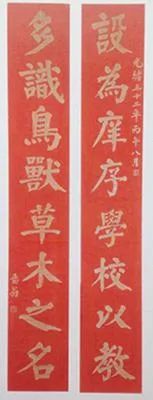 光緒三十二年丙午八月
設為庠序學校以教
多識鳥獸草木之名